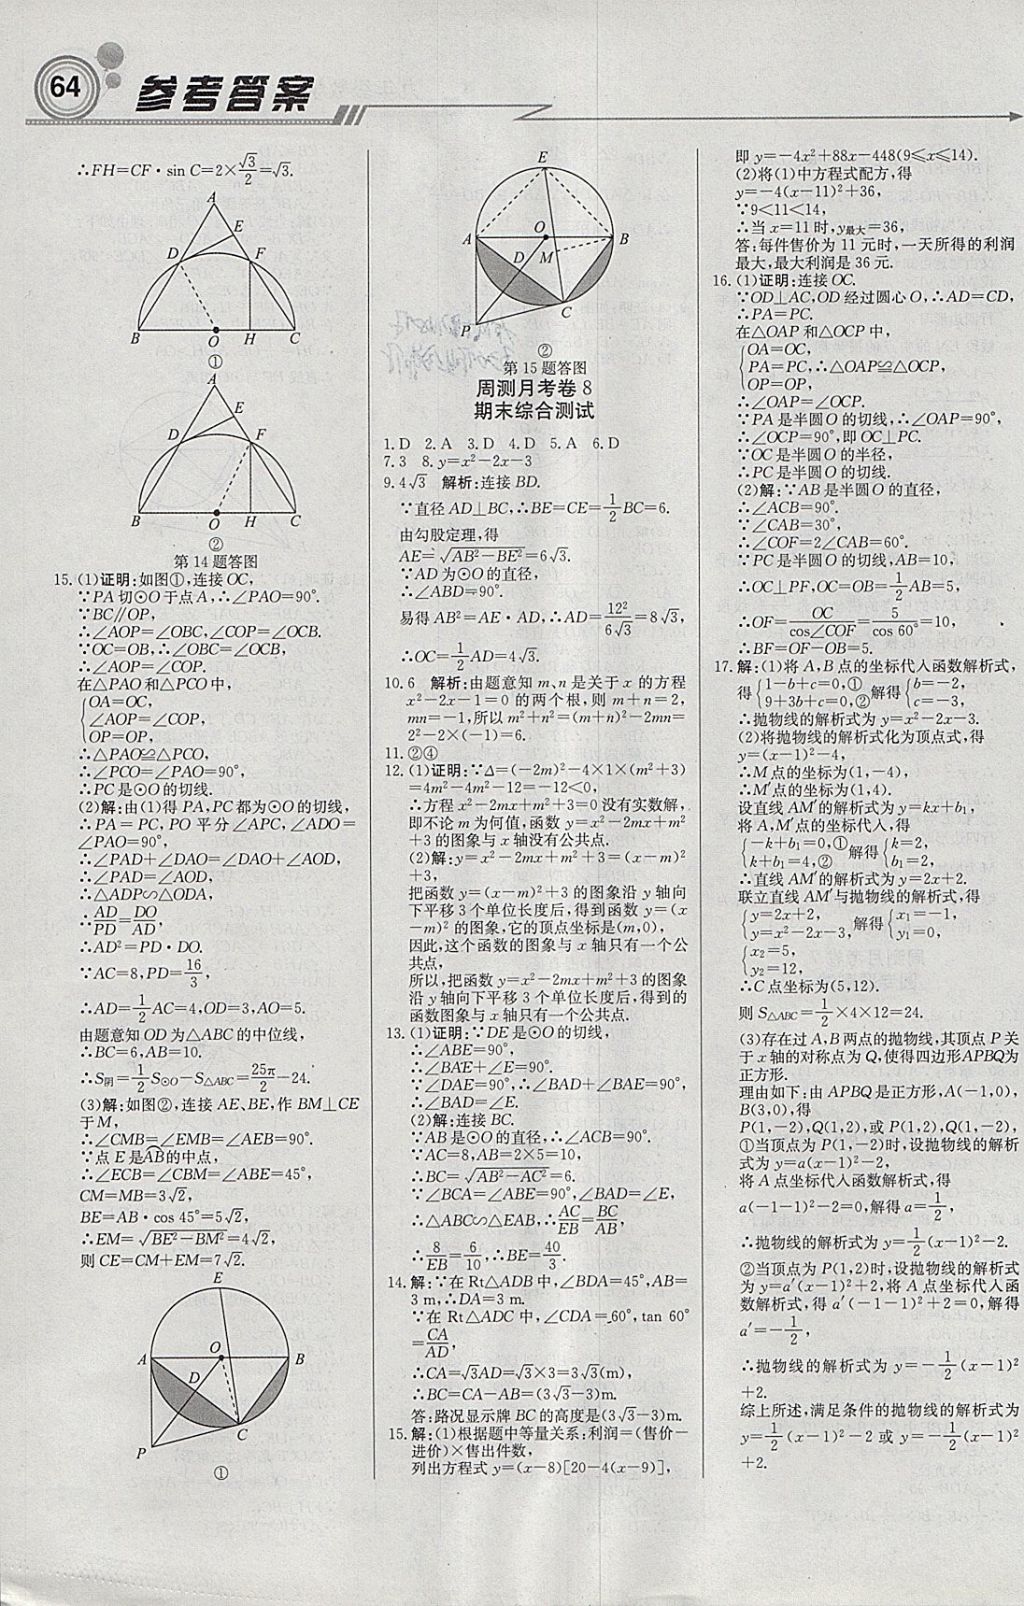 64 参考答案
∴FH=CF·sin C=2×√3/2=√3.
A
D
E
F
B
O
H
C
①
A
D
E
F
B
O
H
C
②
第14题答图
15.(1)证明:如图①,连接OC,
∵PA切⊙O于点A,∴∠PAO=90°.
∵BC∥OP,
∴∠AOP=∠OBC,∠COP=∠OCB.
∵OC=OB,∴∠OBC=∠OCB,
∴∠AOP=∠COP.
在△PAO和△PCO中,
{OA=OC,
∠AOP=∠COP,
OP=OP,
∴△PAO≌△PCO,
∴∠PCO=∠PAO=90°,
∴PC是⊙O的切线.
(2)解:由(1)得PA,PC都为⊙O的切线,
∴PA=PC,PO平分∠APC,∠ADO=
∠PAO=90°,
∴∠PAD+∠DAO=∠DAO+∠AOD,
∴∠PAD=∠AOD,
∴△ADP∽△ODA,
∴AD/PD=DO/AD,
∴AD²=PD·DO.
∵AC=8,PD=16/3,
∴AD=1/2AC=4,OD=3,AO=5.
由题意知OD为△ABC的中位线,
∴BC=6,AB=10.
∴S阴=1/2S⊙O−S△ABC=25π/2−24.
(3)解:如图②,连接AE、BE,作BM⊥CE
于M,
∴∠CMB=∠EMB=∠AEB=90°.
∵点E是AB的中点,
∴∠ECB=∠CBM=∠ABE=45°,
CM=MB=3√2,
BE=AB·cos 45°=5√2,
∴EM=√(BE²−BM²)=4√2,
则CE=CM+EM=7√2.
E
A
O
B
D
C
P
①
E
A
O
B
D
M
C
P
②
第15题答图
周测月考卷8
期末综合测试
1.D 2.A 3.D 4.D 5.A 6.D
7.3 8.y=x²−2x−3
9.4√3 解析:连接BD.
∵直径AD⊥BC,∴BE=CE=1/2BC=6.
由勾股定理,得
AE=√(AB²−BE²)=6√3.
∵AD为⊙O的直径,
∴∠ABD=90°.
易得AB²=AE·AD,∴AD=12²/6√3=8√3,
∴OC=1/2AD=4√3.
10.6 解析:由题意知m、n是关于x的方程
x²−2x−1=0的两个根,则m+n=2,
mn=−1,所以m²+n²=(m+n)²−2mn=
2²−2×(−1)=6.
11.②④
12.(1)证明:∵Δ=(−2m)²−4×1×(m²+3)
=4m²−4m²−12=−12<0,
∴方程x²−2mx+m²+3=0没有实数解,
即不论m为何值,函数y=x²−2mx+m²
+3的图象与x轴没有公共点.
(2)解:y=x²−2mx+m²+3=(x−m)²
+3,
把函数y=(x−m)²+3的图象沿y轴向
下平移3个单位长度后,得到函数y=(x
−m)²的图象,它的顶点坐标是(m,0),
因此,这个函数的图象与x轴只有一个公
共点,
所以,把函数y=x²−2mx+m²+3的图象
沿y轴向下平移3个单位长度后,得到的
函数图象与x轴只有一个公共点.
13.(1)证明:∵DE是⊙O的切线,
∴∠ABE=90°,
∴∠BAE+∠E=90°.
∵∠DAE=90°,∴∠BAD+∠BAE=90°,
∴∠BAD=∠E.
(2)解:连接BC.
∵AB是⊙O的直径,∴∠ACB=90°.
∵AC=8,AB=2×5=10,
∴BC=√(AB²−AC²)=6.
∵∠BCA=∠ABE=90°,∠BAD=∠E,
∴△ABC∽△EAB,∴AC/EB=BC/AB,
∴8/EB=6/10,∴BE=40/3.
14.解:∵在Rt△ADB中,∠BDA=45°,AB=
3 m,∴DA=3 m.
∵在Rt△ADC中,∠CDA=60°,tan 60°
=CA/AD,
∴CA=√3AD=√3×3=3√3(m),
∴BC=CA−AB=(3√3−3)m.
答:路况显示牌BC的高度是(3√3−3)m.
15.解:(1)根据题中等量关系:利润=(售价−
进价)×售出件数,
列出方程式y=(x−8)[20−4(x−9)],
即y=−4x²+88x−448(9⩽x⩽14).
(2)将(1)中方程式配方,得
y=−4(x−11)²+36,
∵9<11<14,
∴当x=11时,y最大=36,
答:每件售价为11元时,一天所得的利润
最大,最大利润是36元.
16.(1)证明:连接OC.
∵OD⊥AC,OD经过圆心O,∴AD=CD,
∴PA=PC.
在△OAP和△OCP中,
{OA=OC,
PA=PC,∴△OAP≌△OCP,
OP=OP,
∴∠OAP=∠OCP.
∵PA是半圆O的切线,∴∠OAP=90°,
∴∠OCP=90°,即OC⊥PC.
∵OC是半圆O的半径,
∴PC是半圆O的切线.
(2)解:∵AB是半圆O的直径,
∴∠ACB=90°.
∵∠CAB=30°,
∴∠COF=2∠CAB=60°.
∵PC是半圆O的切线,AB=10,
∴OC⊥PF,OC=OB=1/2AB=5,
∴OF=OC/cos∠COF=5/cos 60°=10,
∴BF=OF−OB=5.
17.解:(1)将A,B点的坐标代入函数解析式,
得{1−b+c=0,① 9+3b+c=0,②解得{b=−2, c=−3,
∴抛物线的解析式为y=x²−2x−3.
(2)将抛物线的解析式化为顶点式,得
y=(x−1)²−4,
∴M点的坐标为(1,−4),
∴M′点的坐标为(1,4).
设直线AM′的解析式为y=kx+b₁,
将A,M′点的坐标代入,得
{−k+b₁=0,① k+b₁=4,②解得{k=2, b₁=2,
∴直线AM′的解析式为y=2x+2.
联立直线AM′与抛物线的解析式,得
{y=2x+2, y=x²−2x−3,解得{x₁=−1, y₁=0,
{x₂=5,
y₂=12,
∴C点坐标为(5,12).
则S△ABC=1/2×4×12=24.
(3)存在过A,B两点的抛物线,其顶点P关
于x轴的对称点为Q,使得四边形APBQ为
正方形.
理由如下:由APBQ是正方形,A(−1,0),
B(3,0),得
P(1,−2),Q(1,2),或P(1,2),Q(1,−2),
①当顶点为P(1,−2)时,设抛物线的解析
式为y=a(x−1)²−2,
将A点坐标代入函数解析式,得
a(−1−1)²−2=0,解得a=1/2,
∴抛物线的解析式为y=1/2(x−1)²−2.
②当顶点为P(1,2)时,设抛物线的解析式
为y=a′(x−1)²+2,将A点坐标代入函
数解析式,得a′(−1−1)²+2=0,解得
a′=−1/2,
∴抛物线的解析式为y=−1/2(x−1)²
+2.
综上所述,满足条件的抛物线的解析式为
y=1/2(x−1)²−2或y=−1/2(x−1)²
+2.